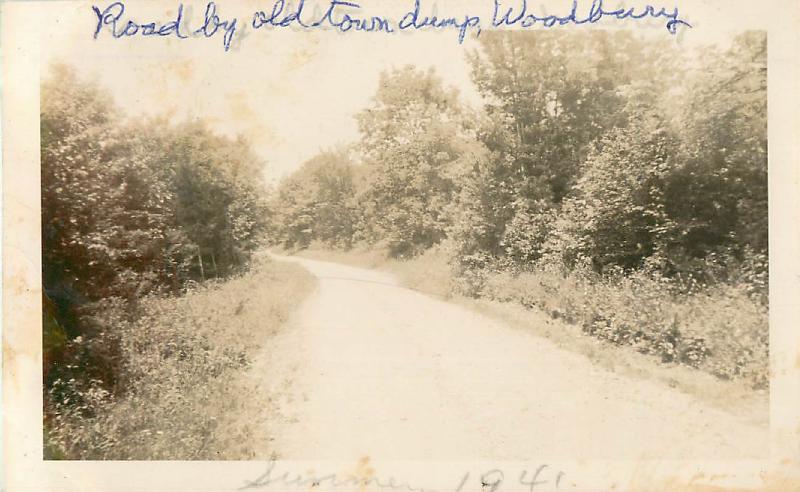 Road by old town dump, Woodbury
Summer 1941